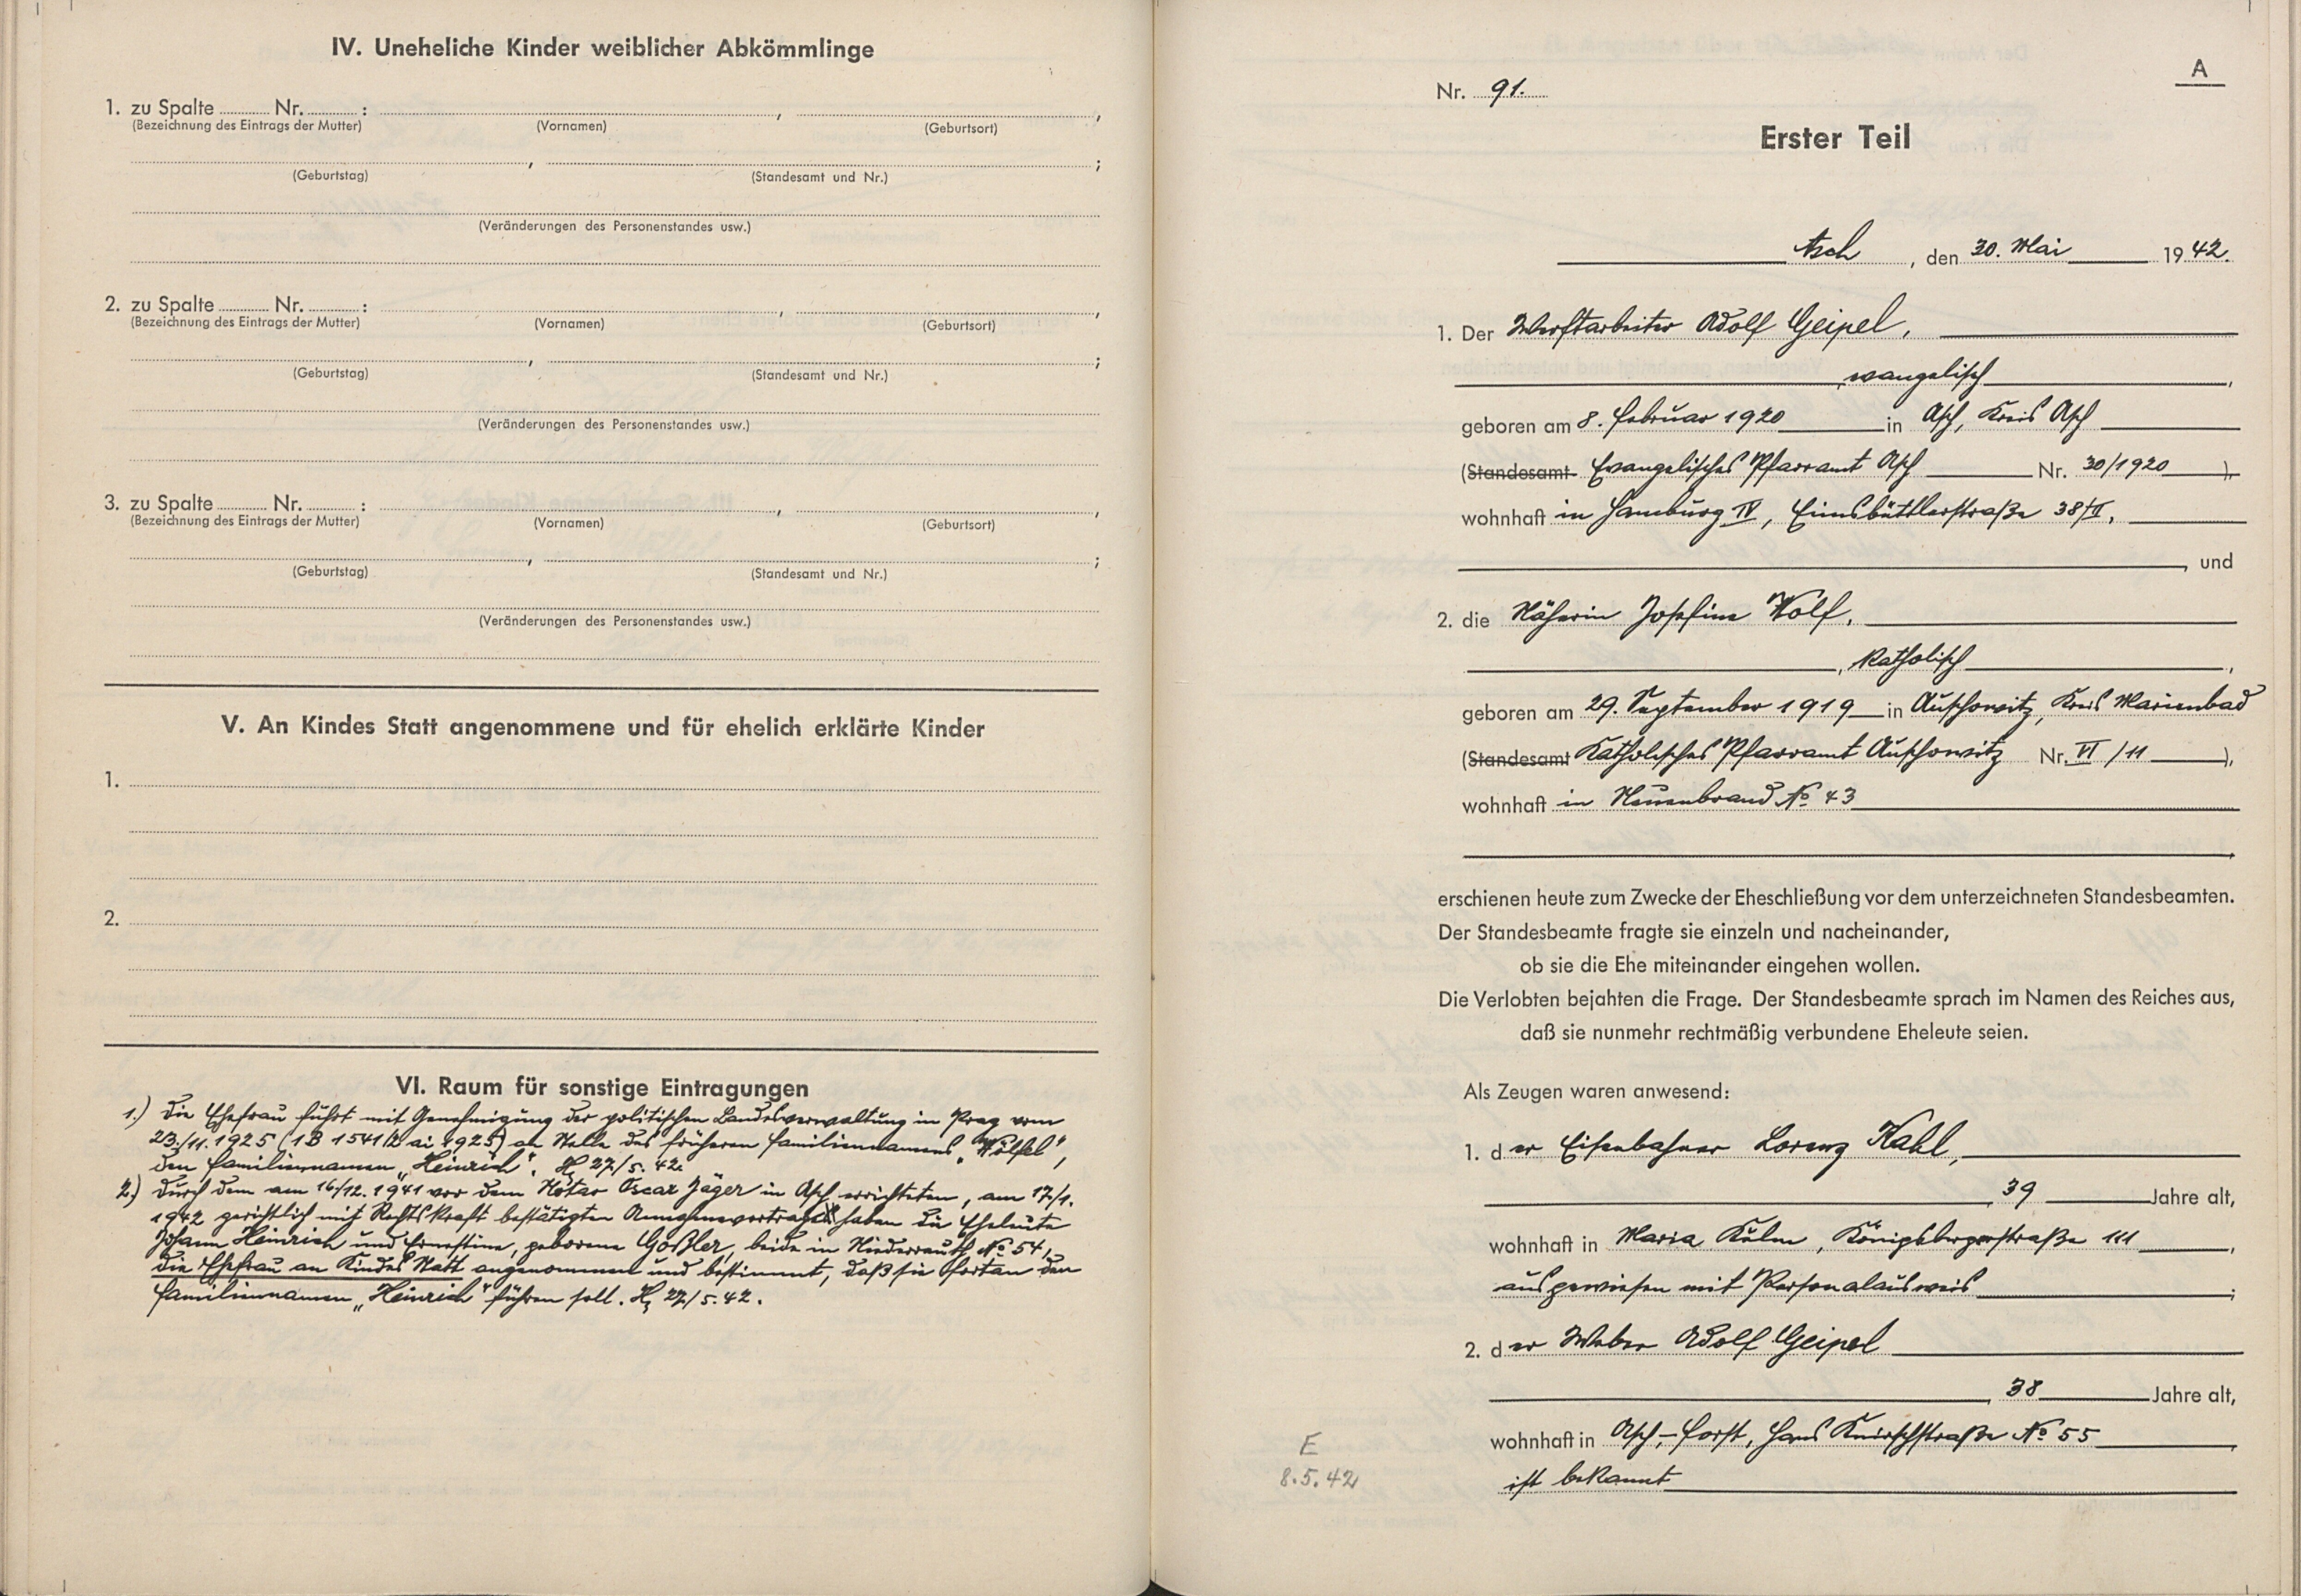 IV. Uneheliche Kinder weiblicher Abkömmlinge
1. zu Spalte Nr. : , ,
(Bezeichnung des Eintrags der Mutter) (Vornamen) (Geburtsort)
, ;
(Geburtstag) (Standesamt und Nr.)
(Veränderungen des Personenstandes usw.)
2. zu Spalte Nr. : , ,
(Bezeichnung des Eintrags der Mutter) (Vornamen) (Geburtsort)
, ;
(Geburtstag) (Standesamt und Nr.)
(Veränderungen des Personenstandes usw.)
3. zu Spalte Nr. : , ,
(Bezeichnung des Eintrags der Mutter) (Vornamen) (Geburtsort)
, ;
(Geburtstag) (Standesamt und Nr.)
(Veränderungen des Personenstandes usw.)
V. An Kindes Statt angenommene und für ehelich erklärte Kinder
1.
2.
VI. Raum für sonstige Eintragungen
1.) Die Ehefrau führt mit Genehmigung der politischen Landesverwaltung in Prag vom
23./11.1925 (1B 1541/2 ai 1925) an Stelle des früheren Familiennamens „Wölfel",
den Familiennamen „Heinrich". H, 27/5. 42.
2.) Durch dem am 16/12.1941 vor dem Notar Oscar Jäger in Asch errichteten, am 17/1.
1942 gerichtlich mit Rechtskraft bestätigten haben die Eheleute
Johann Heinrich und Ernestine, geborene Goßler, beide in Niederreuth No 54,
die Ehefrau an Kindes Statt angenommen und bestimmt, daß sie fortan den
Familiennamen „Heinrich" führen soll. H, 27/5. 42.
A
Nr. 91.
Erster Teil
Asch , den 30. Mai 1942.
1. Der Werftarbeiter Adolf Geipel,
, evangelisch ,
geboren am 8. Februar 1920 in Asch, Kreis Asch
(Standesamt Evangelisches Pfarramt Asch Nr. 30/1920 ),
wohnhaft in Hamburg IV, Eimsbüttlerstraße 38/II,
, und
2. die Näherin Josefine Wolf,
, katholisch ,
geboren am 29. September 1919 in Auschowitz, Kreis Marienbad
(Standesamt Katholisches Pfarramt Auschowitz Nr. VI/11 ),
wohnhaft in Neuenbrand No 43
,
erschienen heute zum Zwecke der Eheschließung vor dem unterzeichneten Standesbeamten.
Der Standesbeamte fragte sie einzeln und nacheinander,
ob sie die Ehe miteinander eingehen wollen.
Die Verlobten bejahten die Frage. Der Standesbeamte sprach im Namen des Reiches aus,
daß sie nunmehr rechtmäßig verbundene Eheleute seien.
Als Zeugen waren anwesend:
1. der Eisenbahner Lorenz Kahl,
, 39 Jahre alt,
wohnhaft in Maria Kulm, Königsbergerstraße 111 ,
ausgewiesen mit Personalausweis ;
2. der Weber Adolf Geipel
, 38 Jahre alt,
wohnhaft in Asch,-Forst, Hans Knirschstraße No 55 ,
ist bekannt
E
8.5.42